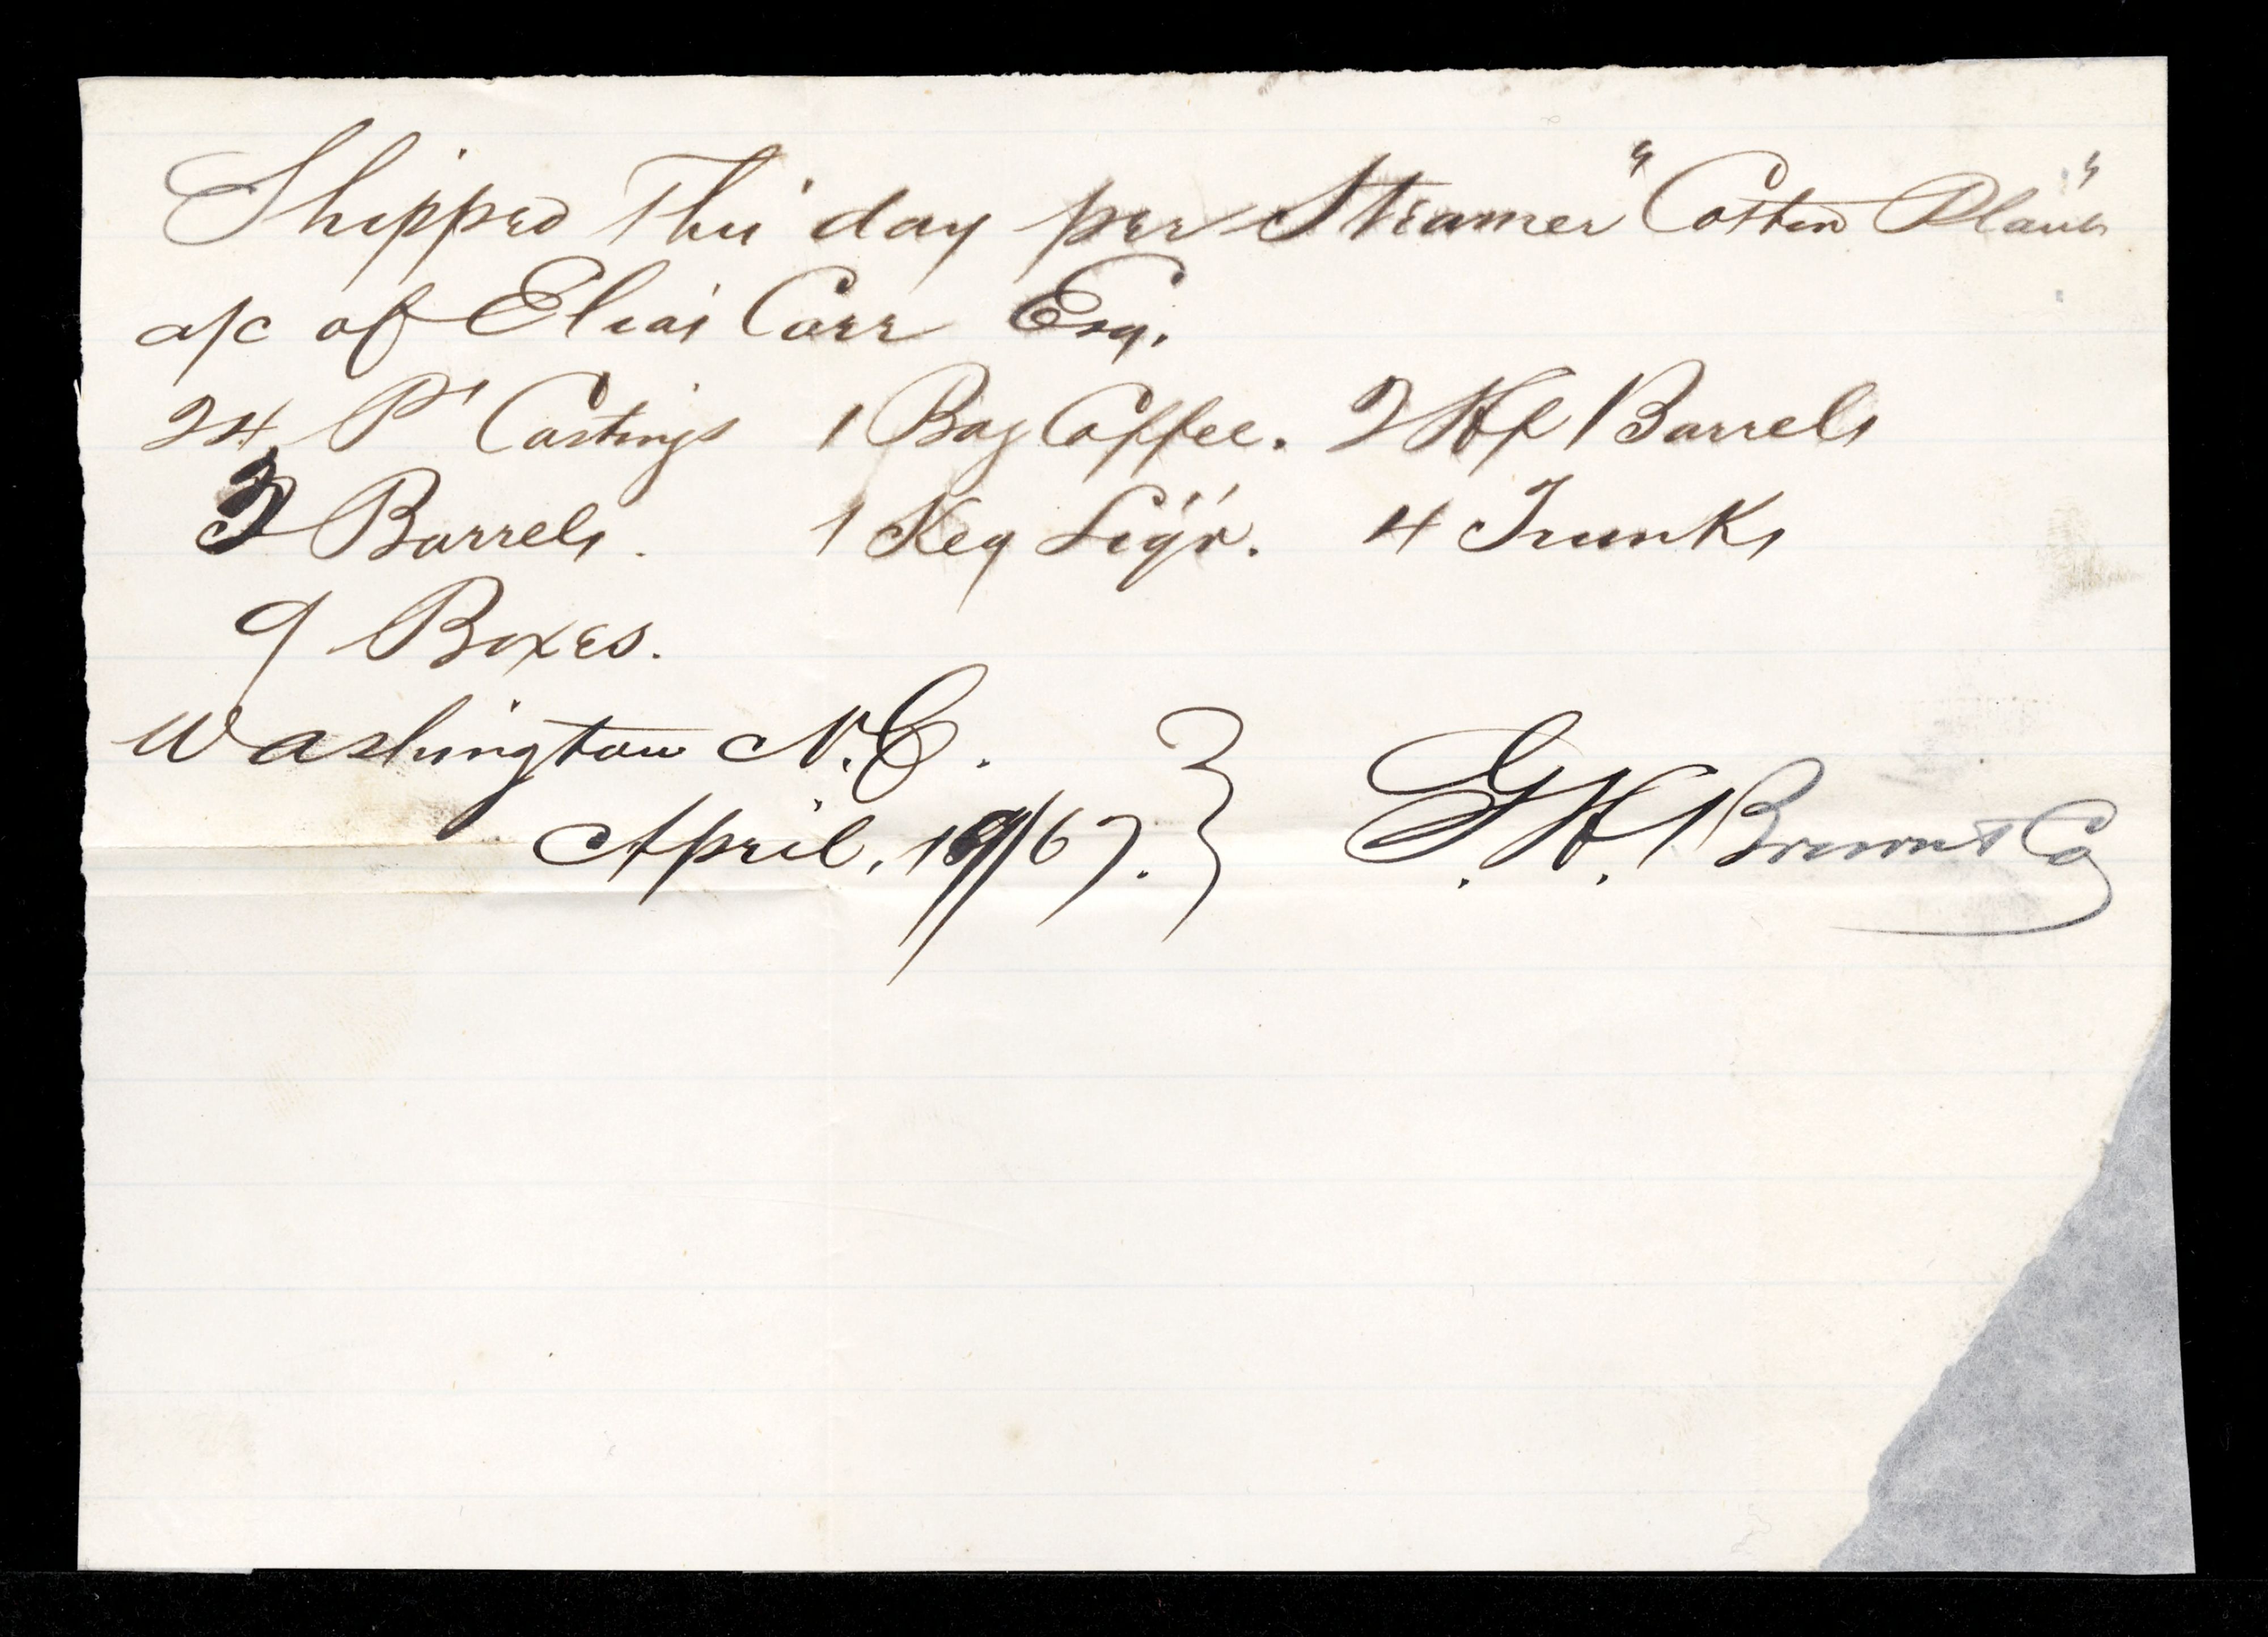 Shipped this day per Steamer "Cotton Plant"
a/c of Elias Carr Esq.
24 Ps Castings 1 Bag Coffee. 2 Hf Barrels
3 Barrels. 1 Keg Liq'r. 4 Trunks
9 Boxes.
Washington N.C.
April, 19/67. G. H. Brown & Co